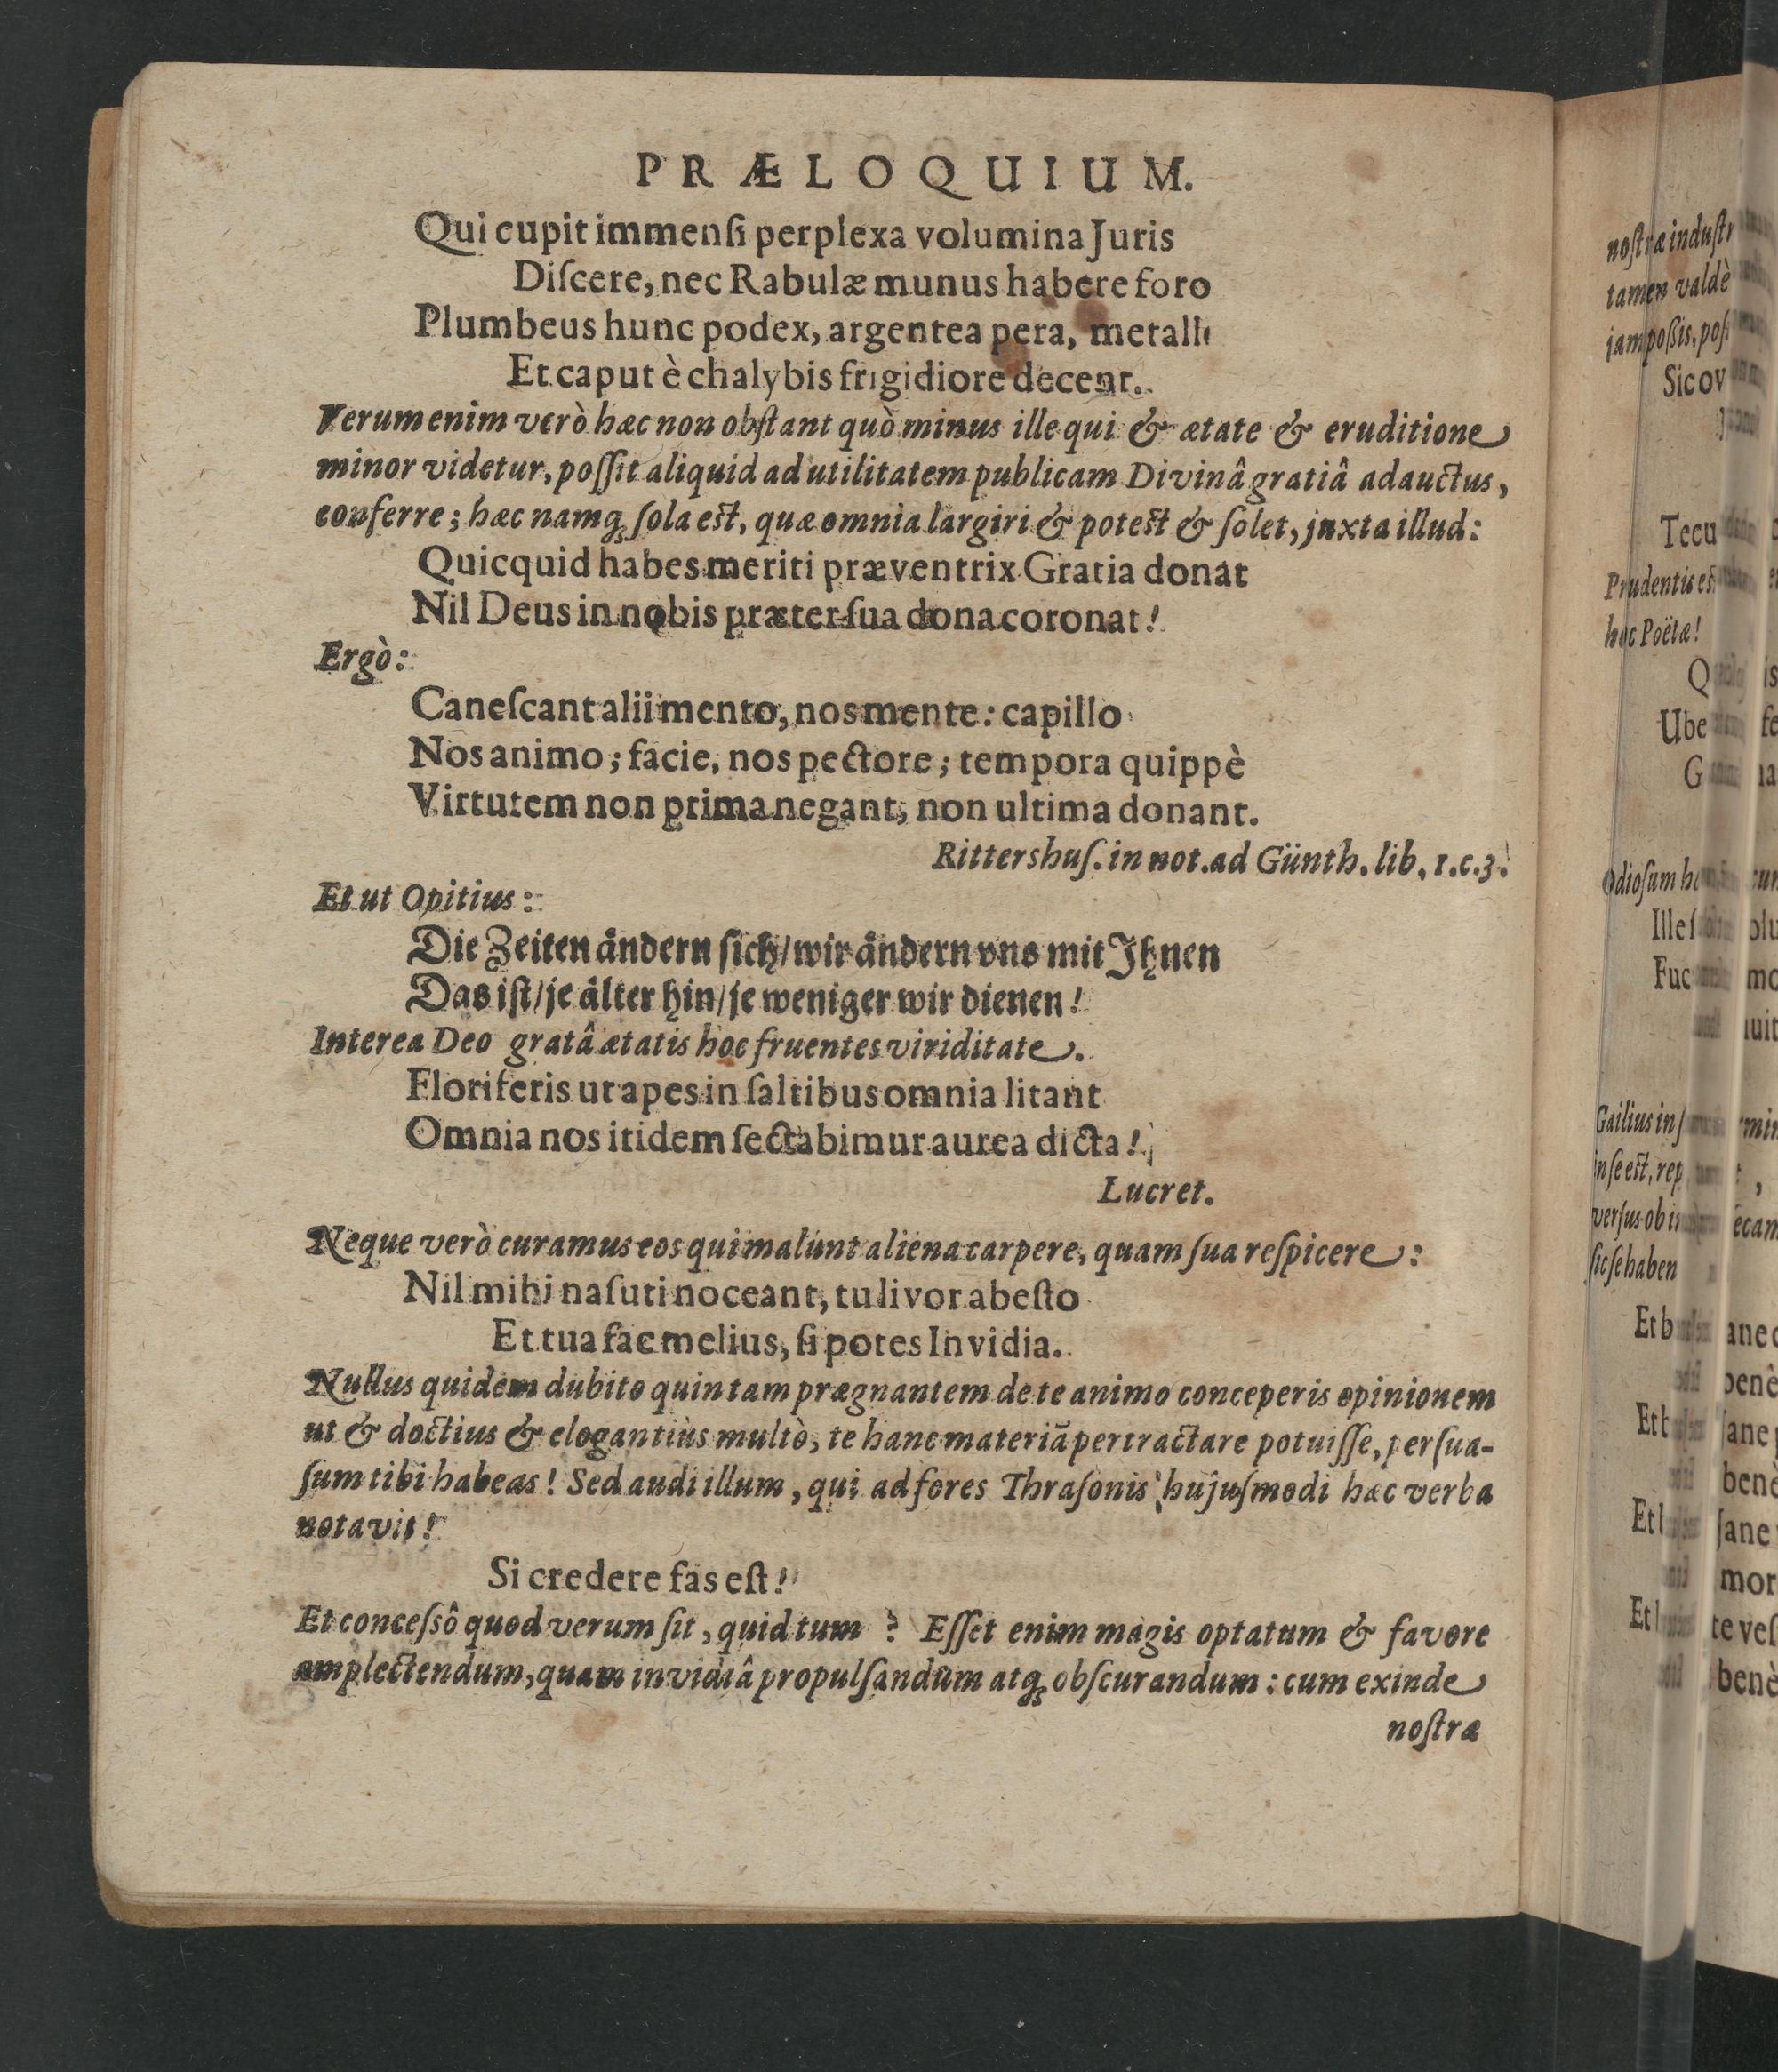 PRÆLOQUIUM.
Qui cupit immenſi perplexa volumina Juris
Diſcere, nec Rabulæ munus habere foro
Plumbeus hunc podex, argentea pera, metalli
Et caput è chalybis frigidiore decent.
Verum enim verò hæc non obſtant quò minus ille qui & ætate & eruditione
minor videtur, poſſit aliquid ad utilitatem publicam Divinâ gratiâ adauctus,
conferre; hæc namq; ſola eſt, quæ omnia largiri & poteſt & ſolet, juxta illud:
Quicquid habes meriti præventrix Gratia donat
Nil Deus in nobis præter ſua dona coronat!
Ergò:
Caneſcant alii mento, nos mente: capillo
Nos animo; facie, nos pectore; tempora quippè
Virtutem non prima negant, non ultima donant.
Rittershuſ. in not. ad Günth. lib. 1. c. 3.
Et ut Opitius:
Die Zeiten ändern ſich/ wir ändern vns mit Jhnen
Das iſt/ je älter hin/ je weniger wir dienen!
Interea Deo gratâ ætatis hoc fruentes viriditate.
Floriferis ut apes in ſaltibus omnia litant
Omnia nos itidem ſectabimur aurea dicta!
Lucret.
Neque verò curamus eos qui malunt aliena carpere, quam ſua reſpicere:
Nil mihi naſuti noceant, tu livor abeſto
Et tua fac melius, ſi potes Invidia.
Nullus quidem dubito quin tam prægnantem de te animo conceperis opinionem
ut & doctius & elogantiùs multò, te hanc materiã pertractare potuiſſe, perſua-
ſum tibi habeas! Sed audi illum, qui ad fores Thraſonis hujuſmodi hæc verba
notavit!
Si credere fas eſt!
Et conceſsô quod verum ſit, quid tum ? Eſſet enim magis optatum & favore
amplectendum, quam invidiâ propulſandum atq; obſcurandum: cum exinde
noſtræ
noſtræ induſtr
tamen valdè
jam poßis, poſ
Sic ov
Tecu
Prudentis eſ
hoc Poëtæ!
Ube
odioſum h
Illeſ
Fuc
Gailius in ſ
in ſe eſt, rep
verſus ob i
ſic ſe haben
Et b
Et b
Et
Et